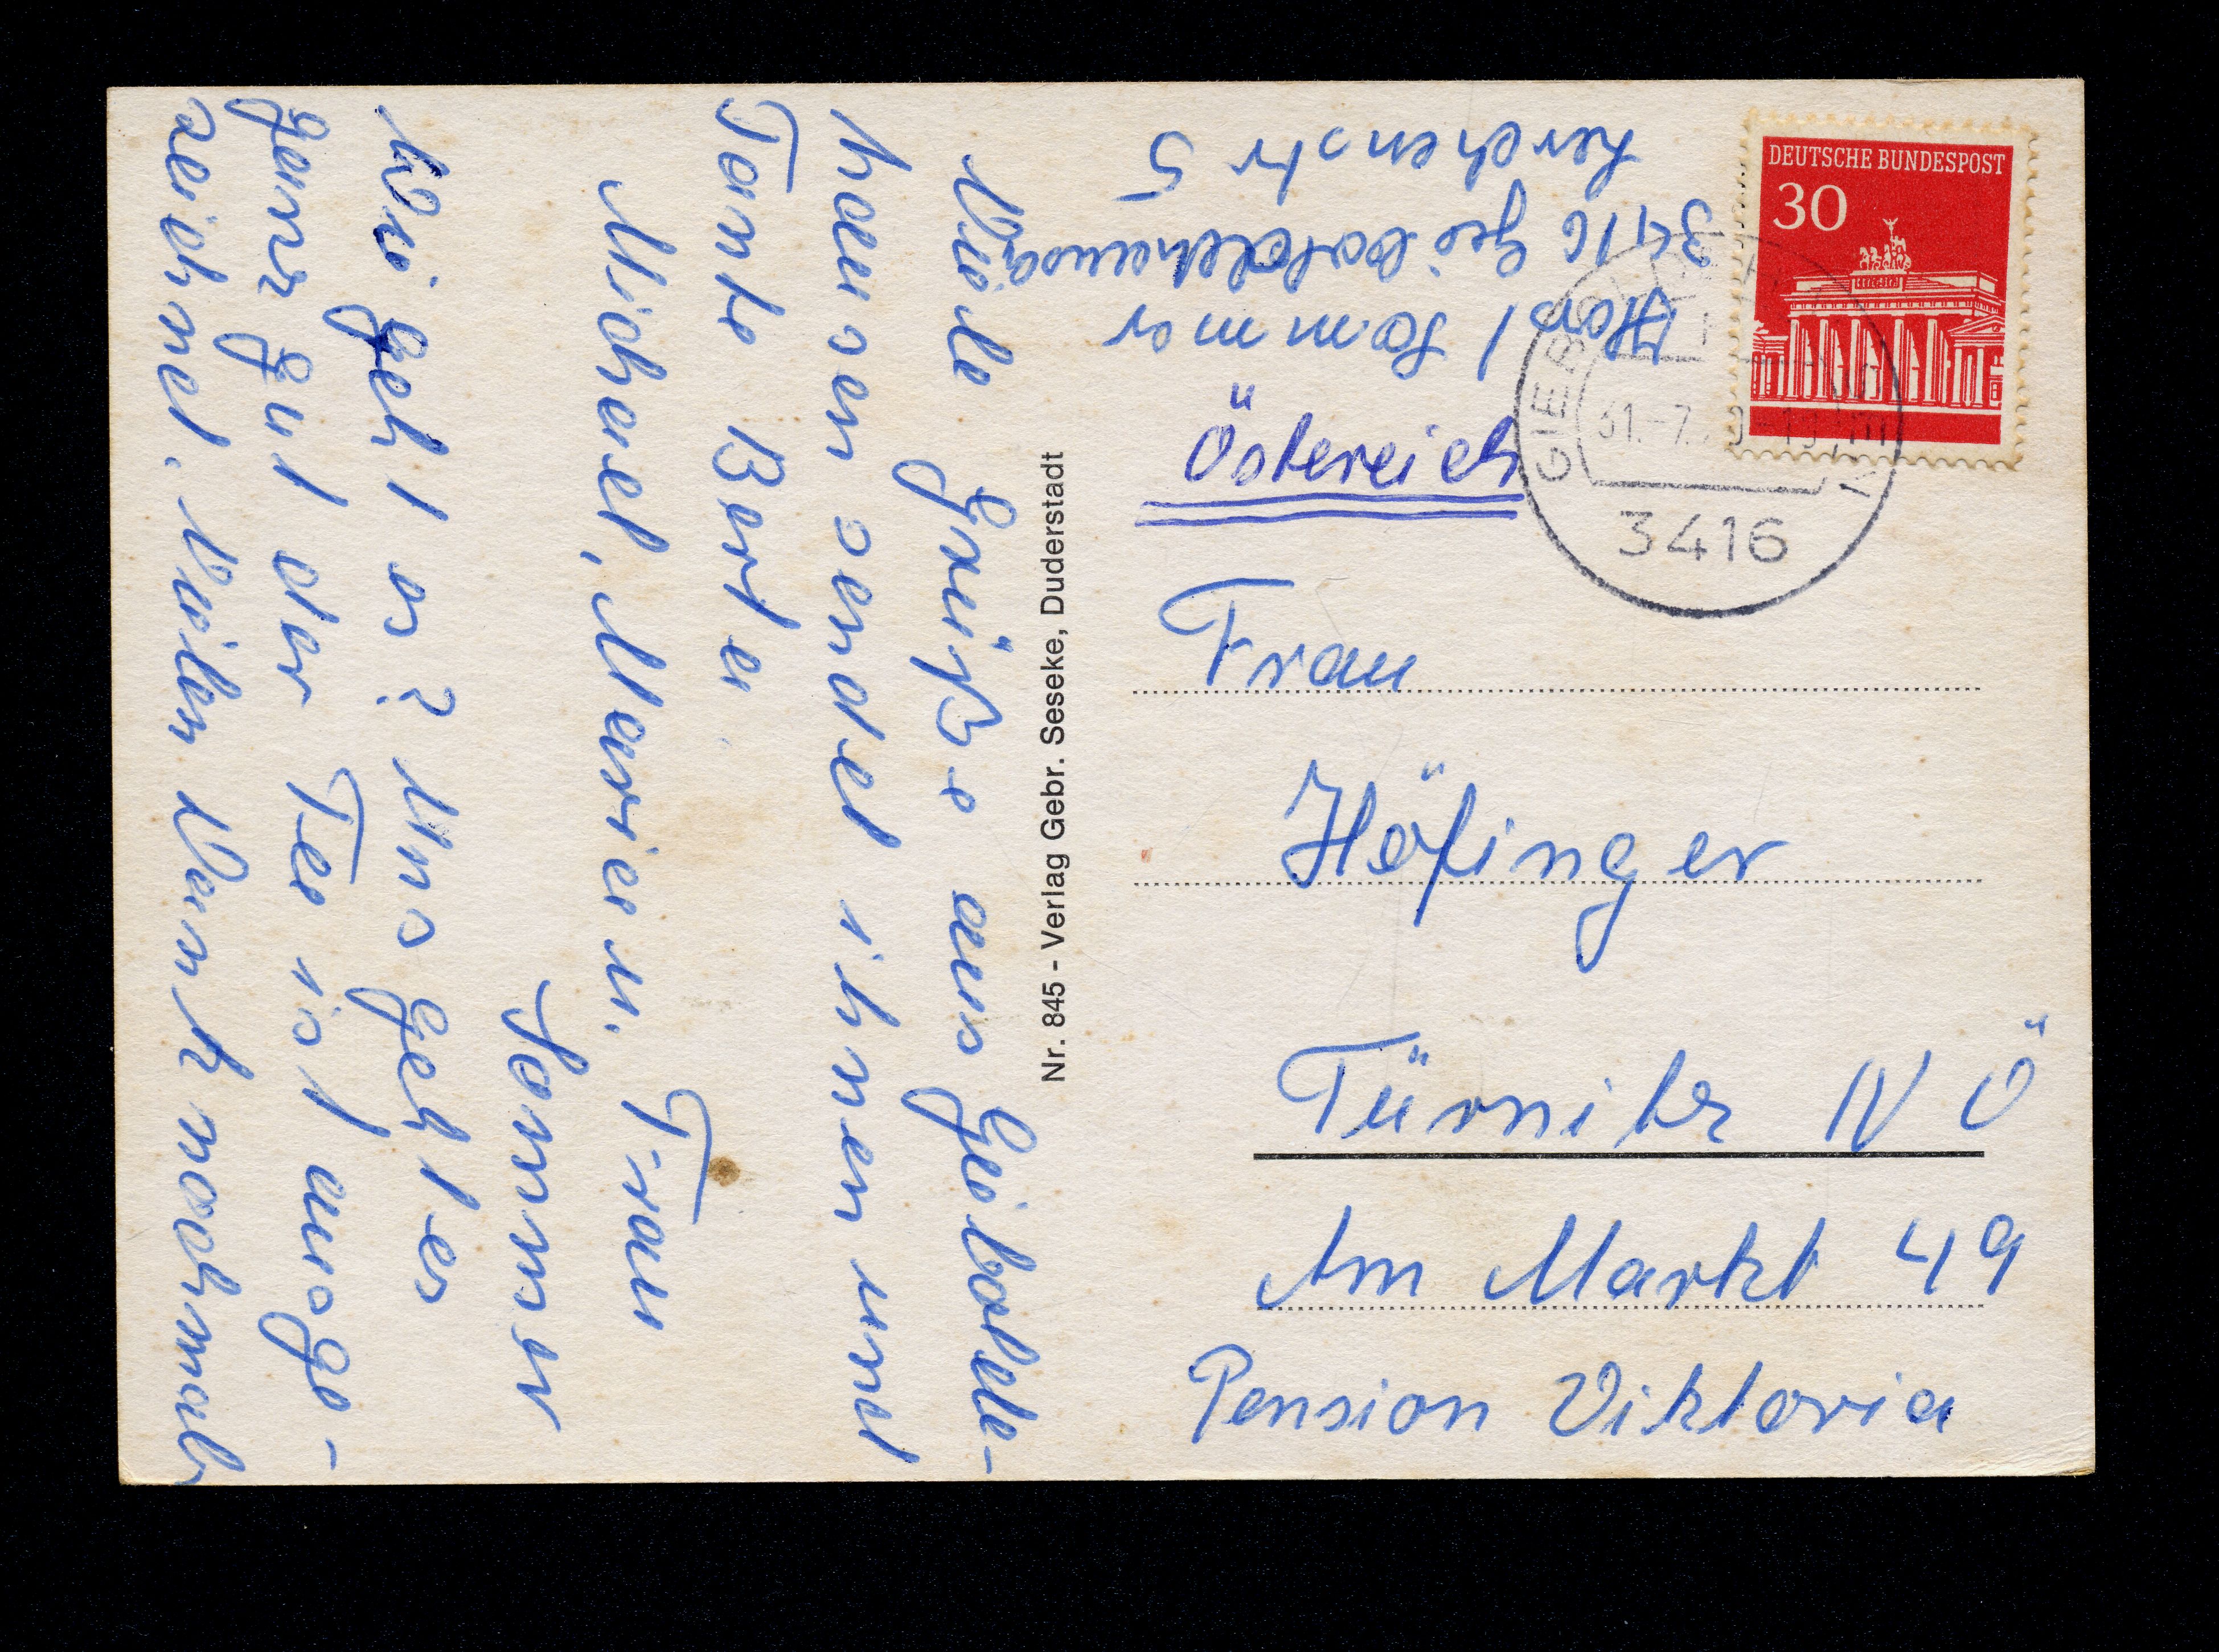 Viele Grüße aus Geibolde-
hausen sendet ihnen und
Tante Berta
Michael, Maria u. Frau
Sommer
Wie geht es? Uns geht es
ganz gut der Tee ist ausge-
zeichnet. Vielen Dank nochmals
Nr. 845 - Verlag Gebr. Seseke, Duderstadt
Sommer
3416
Lerchenstr 5
DEUTSCHE BUNDESPOST
30
3416
Östereich
Frau
Höfinger
Türnitz NÖ
Am Markt 49
Pension Viktoria